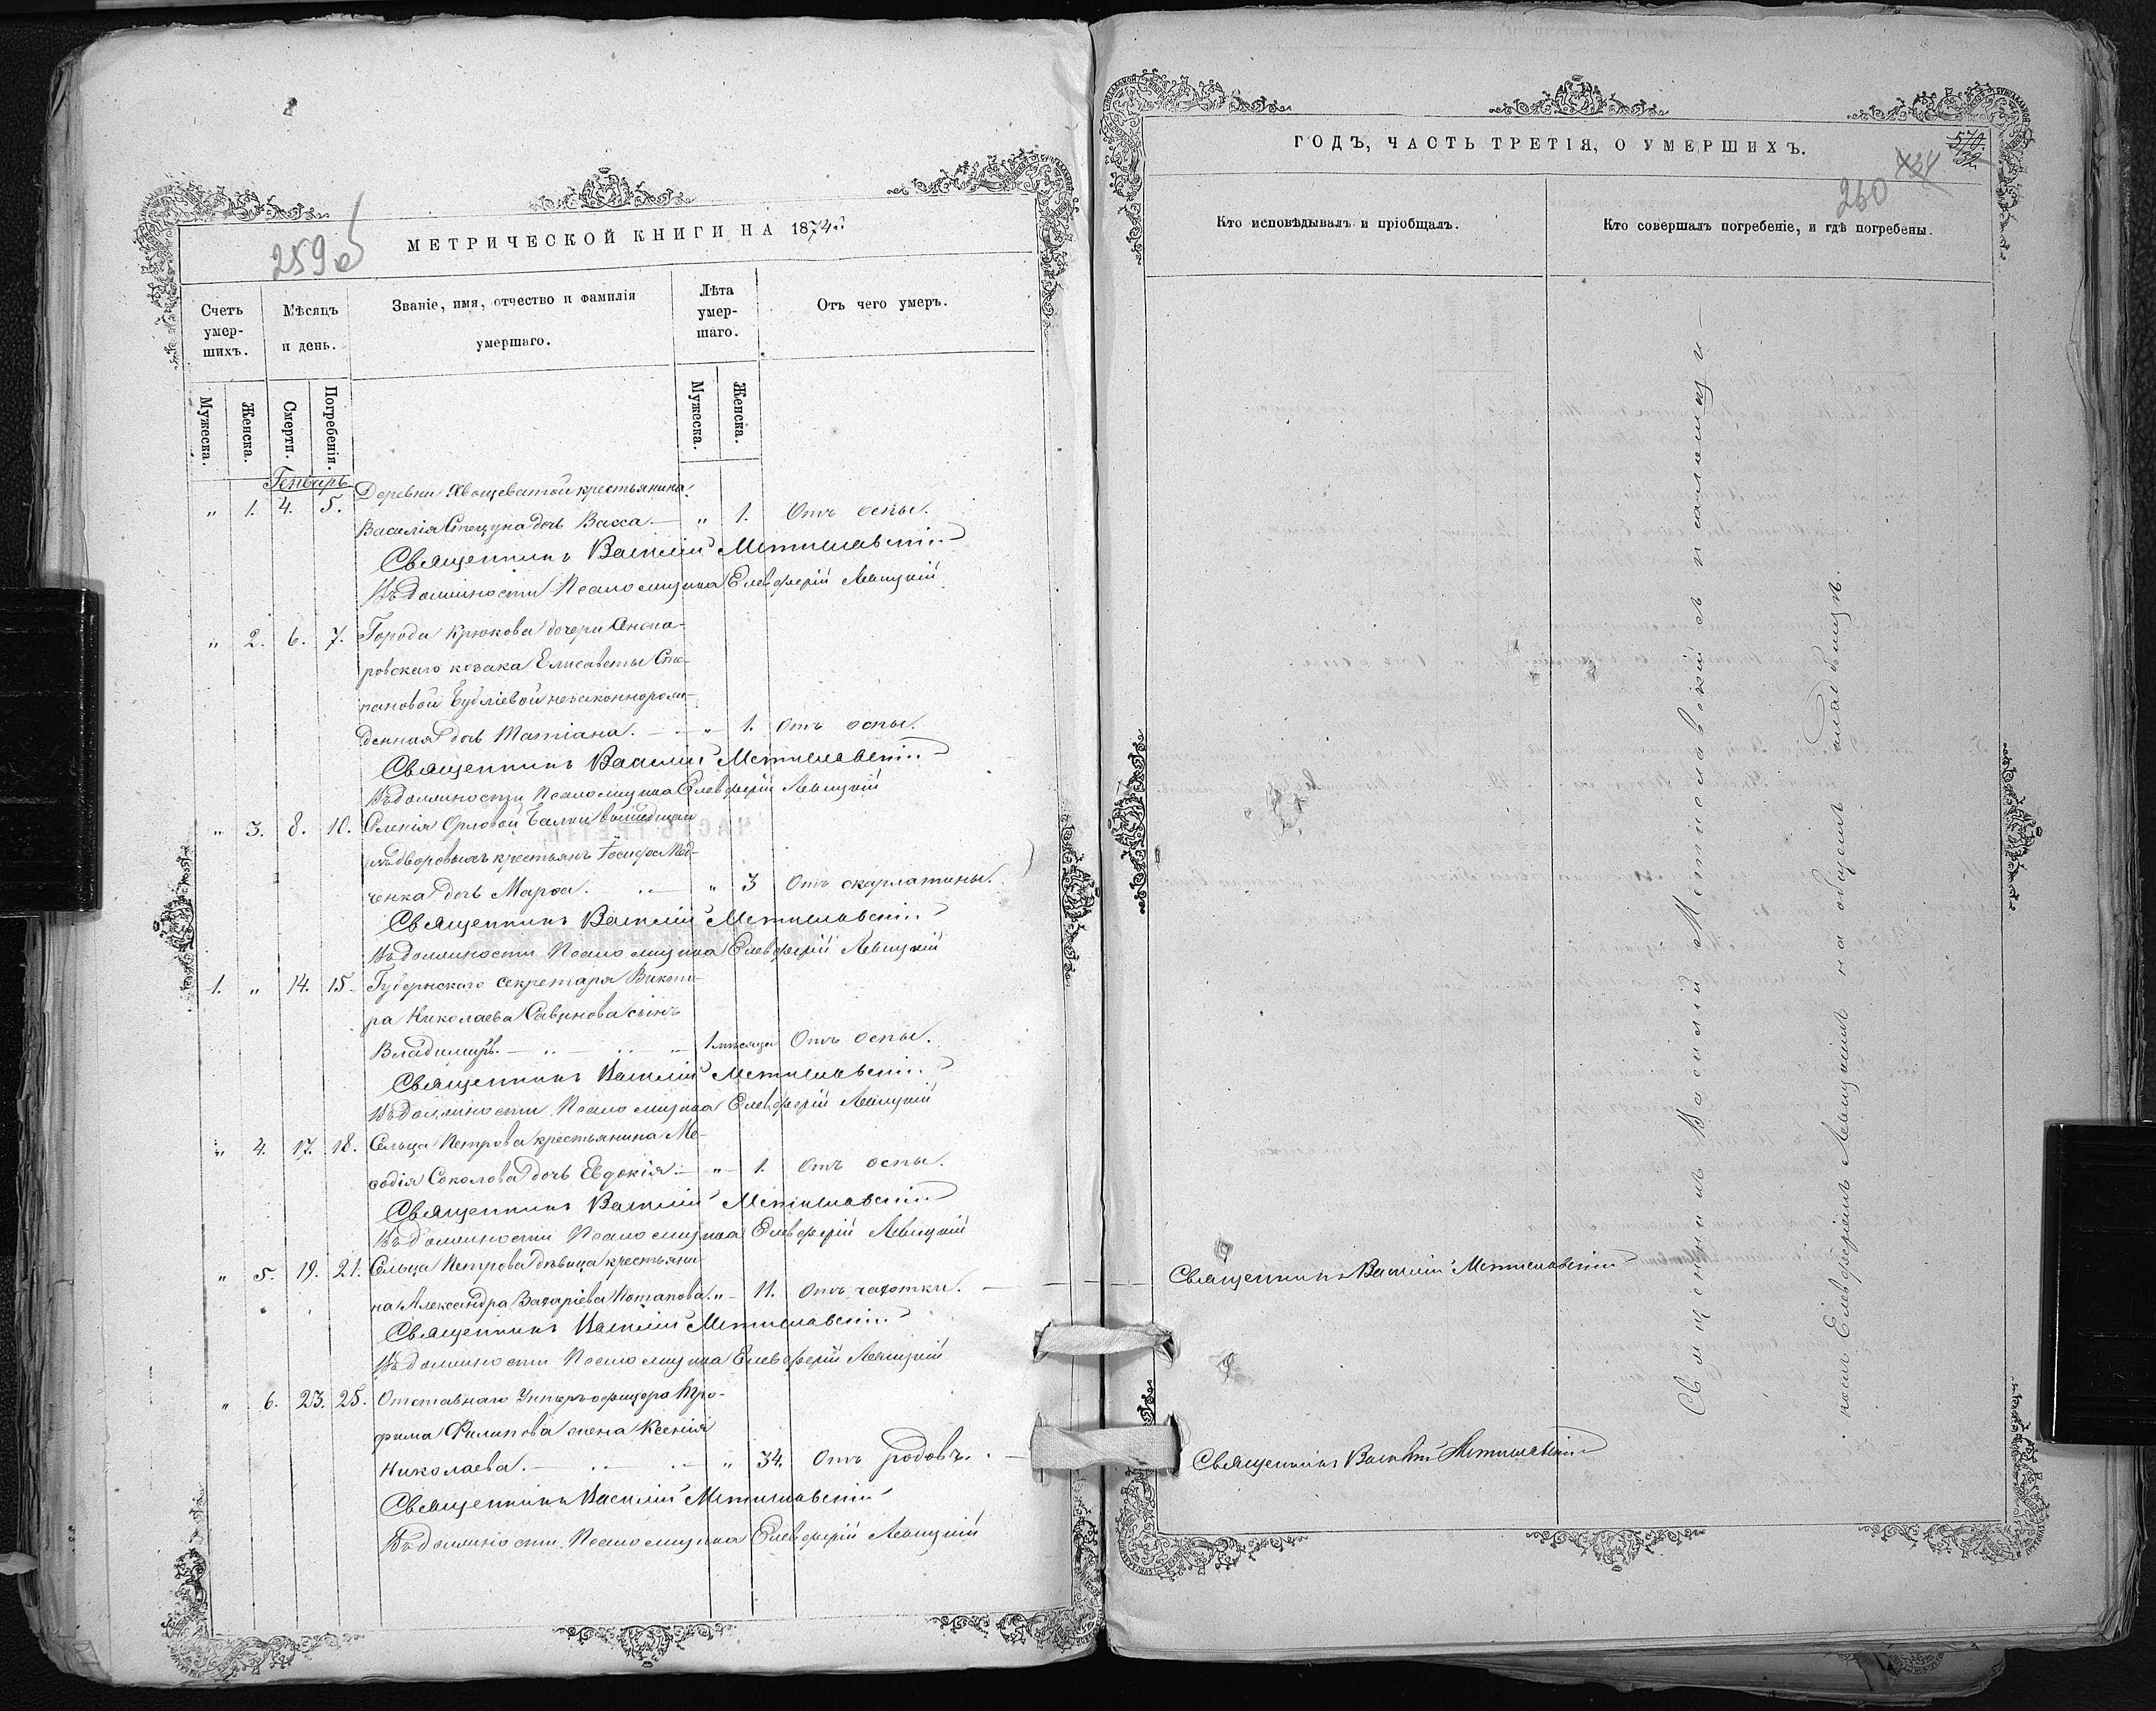 259 об
МЕТРИЧЕСКОЙ КНИГИ НА 1874й
Счетъ умер-шихъ.
Мѣсяцъ и день.
Званіе, имя, отчество и фамилія умершаго.
Лѣта умер-шаго.
Отъ чего умеръ.
Мужеска.
Женска.
Смерти.
Погребенія.
Мужеска.
Женска.
Генварь
Деревни Хвощеватой крестьянина
„ 1. 4. 5. Василія Стецуна дочь Васса. — „ 1. Отъ оспы.
Священникъ Василій Мстиславскій
Въ должности Псаломщика Елевферій Левицкій
„ 2. 6. 7. Города Крюкова дочери
ровскаго козака Елисаветы Сте-
пановой незаконнорож-
денная дочь Татіана. — „ — 1. Отъ оспы.
Священникъ Василій Мстиславскій
Въ должности Псаломщика Елевферій Левицкій
„ 3. 8. 10. Селенія Орловой Балки вышедшаго
изъ дворовыхъ крестьянъ Іосифа
ченка дочь Марѳа. — „ 3 Отъ скарлатины.
Священникъ Василій Мстиславскій
Въ должности Псаломщика Елевферій Левицкій
1. „ 14. 15. Губернскаго секретаря Викто-
ра Николаева Савинова сынъ
Владиміръ. — 1 мѣсяца Отъ оспы.
Священникъ Василій Мстиславскій
Въ должности Псаломщика Елевферій Левицкій
„ 4. 17. 18. Сельца Петрова крестьянина Ме-
ѳодія Соколова дочь Евдокія. — „ — 1. Отъ оспы.
Священникъ Василій Мстиславскій
Въ должности Псаломщика Елевферій Левицкій
„ 5. 19. 21. Сельца Петрова дѣвица крестьяни-
на Александра Захаріева Потапова. „ — 11. Отъ чахотки. —
Священникъ Василій Мстиславскій
Въ должности Псаломщика Елевферій Левицкій
„ 6. 23. 25. Отставнаго Унтеръ-офицера Тро-
фима Филипова жена Ксенія
Николаева. — „ 34. Отъ родовъ. —
Священникъ Василій Мстиславскій
Въ должности Псаломщика Елевферій Левицкій
ГОДЪ, ЧАСТЬ ТРЕТІЯ, О УМЕРШИХЪ.
570.
434
260
Кто исповѣдывалъ и пріобщалъ.
Кто совершалъ погребеніе, и гдѣ погребены.
Священникъ Василій Мстиславскій
Священникъ Василій Мстиславскій
Священникъ Василій Мстиславскій съ псаломщи—
комъ Елевферіемъ Левицкимъ на общемъ кладбищѣ.